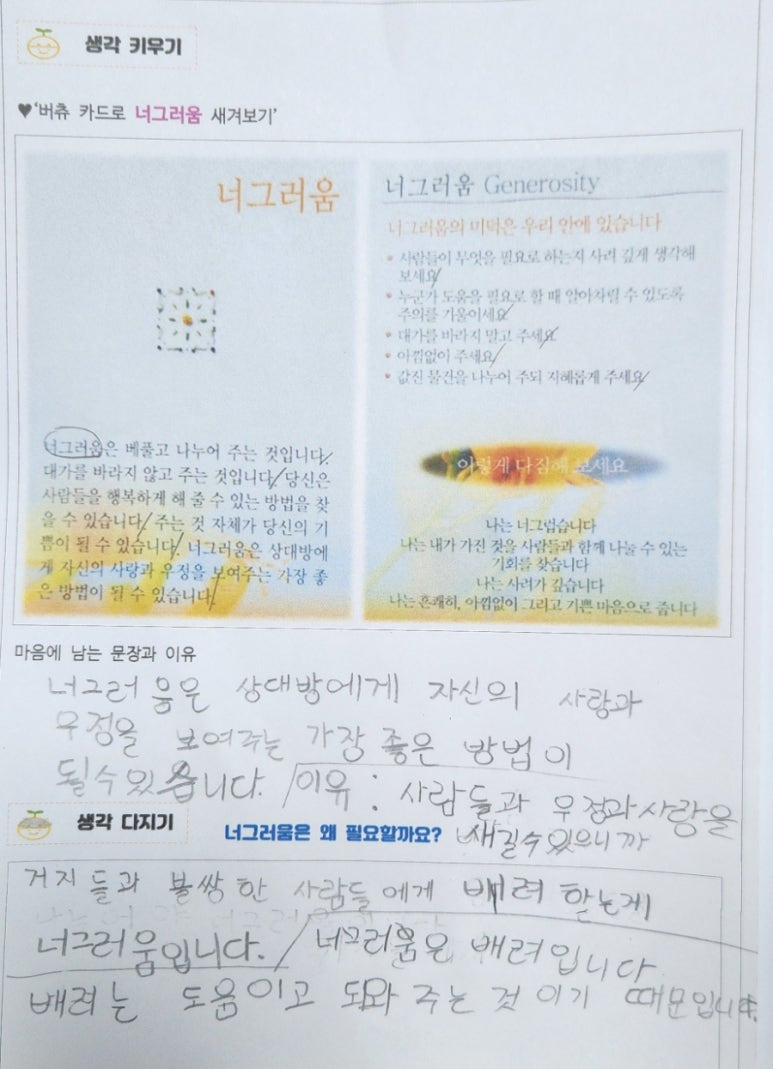 생각 키우기
♥'버츄 카드로 너그러움 새겨보기'
너그러움
너그러움은 베풀고 나누어 주는 것입니다.
대가를 바라지 않고 주는 것입니다. 당신은
사람들을 행복하게 해 줄 수 있는 방법을 찾
을 수 있습니다. 주는 것 자체가 당신의 기
쁨이 될 수 있습니다. 너그러움은 상대방에
게 자신의 사랑과 우정을 보여주는 가장 좋
은 방법이 될 수 있습니다.
너그러움 Generosity
너그러움의 미덕은 우리 안에 있습니다
• 사람들이 무엇을 필요로 하는지 사려 깊게 생각해
보세요
• 누군가 도움을 필요로 할 때 알아차릴 수 있도록
주의를 기울이세요
• 대가를 바라지 말고 주세요
• 아낌없이 주세요
• 값진 물건을 나누어 주되 지혜롭게 주세요
이렇게 다짐해 보세요
나는 너그럽습니다
나는 내가 가진 것을 사람들과 함께 나눌 수 있는
기회를 찾습니다
나는 사려가 깊습니다
나는 흔쾌히, 아낌없이 그리고 기쁜 마음으로 줍니다
마음에 남는 문장과 이유
너그러움은 상대방에게 자신의 사랑과
우정을 보여주는 가장 좋은 방법이
될수있습니다. 이유: 사람들과 우정과사랑을
새길수있으니까
생각 다지기
너그러움은 왜 필요할까요?
거지들과 불쌍한 사람들에게 배려 하는게
너그러움입니다. / 너그러움은 배려입니다
배려는 도움이고 도와 주는 것 이기 때문입니다.